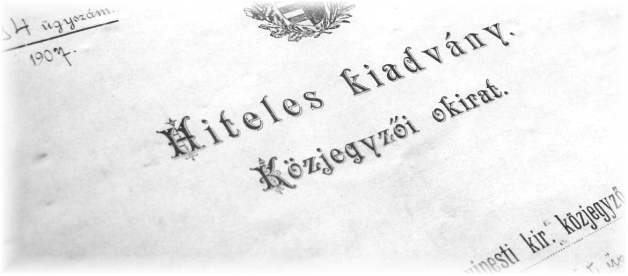 34 ügyszám.
1907.
Hiteles kiadvány.
Közjegyzői okirat.
kir. közjegyző